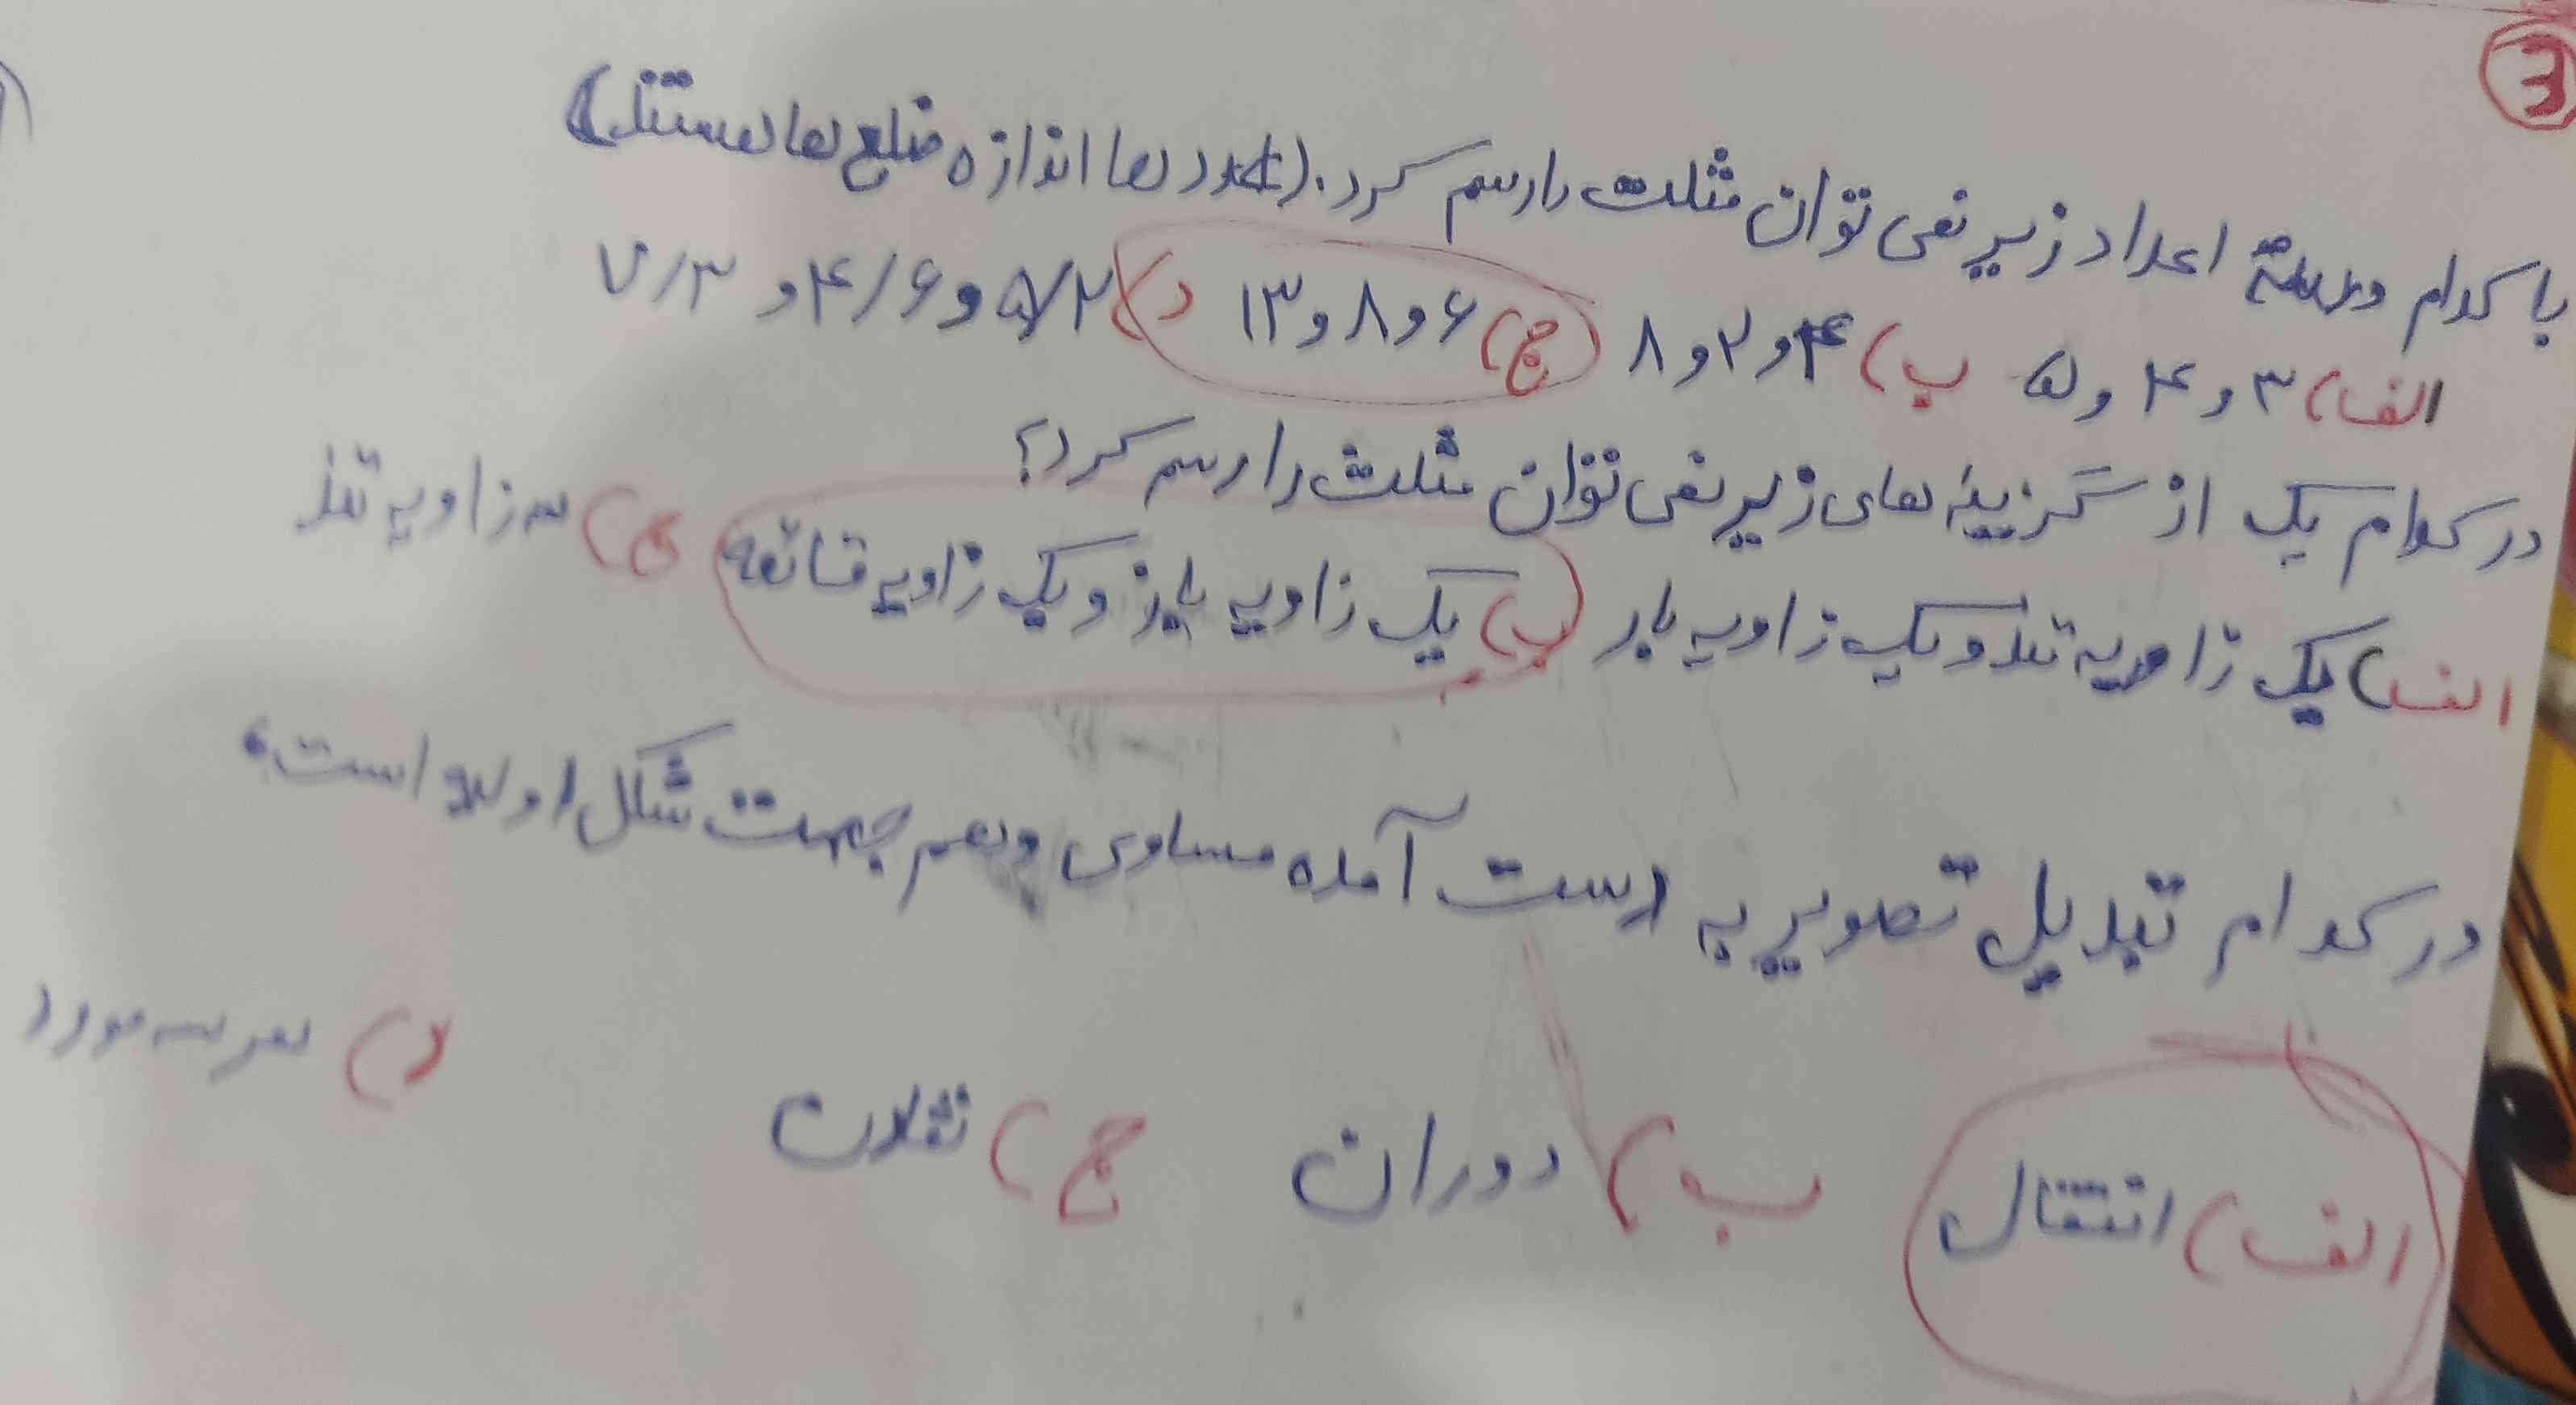 ۳
با کدام دسته اعداد زیر نمی توان مثلث را رسم کرد. (عدد ها اندازه ضلع ها هستند)
الف) ۳ و ۴ و ۵ ب) ۴ و ۲ و ۸ ج) ۶ و ۸ و ۱۳ د) ۵/۲ و ۴/۶ و ۷/۳
در کدام یک از گزینه های زیر نمی توان مثلث را رسم کرد؟
الف) یک زاویه تند و یک زاویه باز ب) یک زاویه باز و یک زاویه قائمه ج) سه زاویه تند
در کدام تبدیل تصویر به دست آمده مساوی و هم جهت شکل اولیه است؟
الف) انتقال ب) دوران ج) تقارن د) هر سه مورد